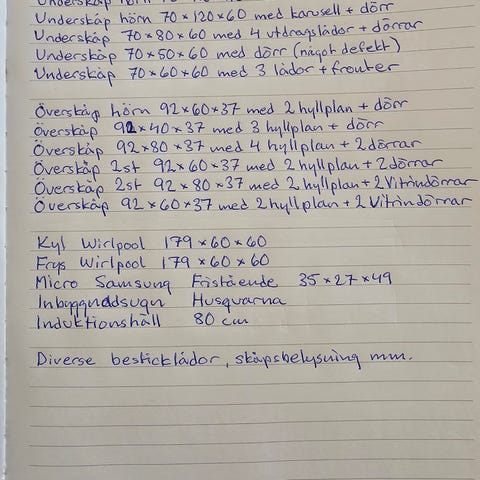 Underskåp hörn 70
Underskåp hörn 70 × 120 × 60 med karusell + dörr
Underskåp 70 × 80 × 60 med 4 utdragslådor + dörrar
Underskåp 70 × 50 × 60 med dörr (något defekt)
Underskåp 70 × 60 × 60 med 3 lådor + fronter
Överskåp hörn 92 × 60 × 37 med 2 hyllplan + dörr
Överskåp 92 × 40 × 37 med 3 hyllplan + dörr
Överskåp 92 × 80 × 37 med 4 hyllplan + 2 dörrar
Överskåp 2st 92 × 60 × 37 med 2 hyllplan + 2 dörrar
Överskåp 2st 92 × 80 × 37 med 2 hyllplan + 2 Vitrindörrar
Överskåp 92 × 60 × 37 med 2 hyllplan + 2 Vitrindörrar
Kyl Wirlpool 179 × 60 × 60
Frys Wirlpool 179 × 60 × 60
Micro Samsung Fristående 35 × 27 × 49
Inbyggnadsugn Husqvarna
Induktionshäll 80 cm
Diverse besticklådor, skåpsbelysning mm.